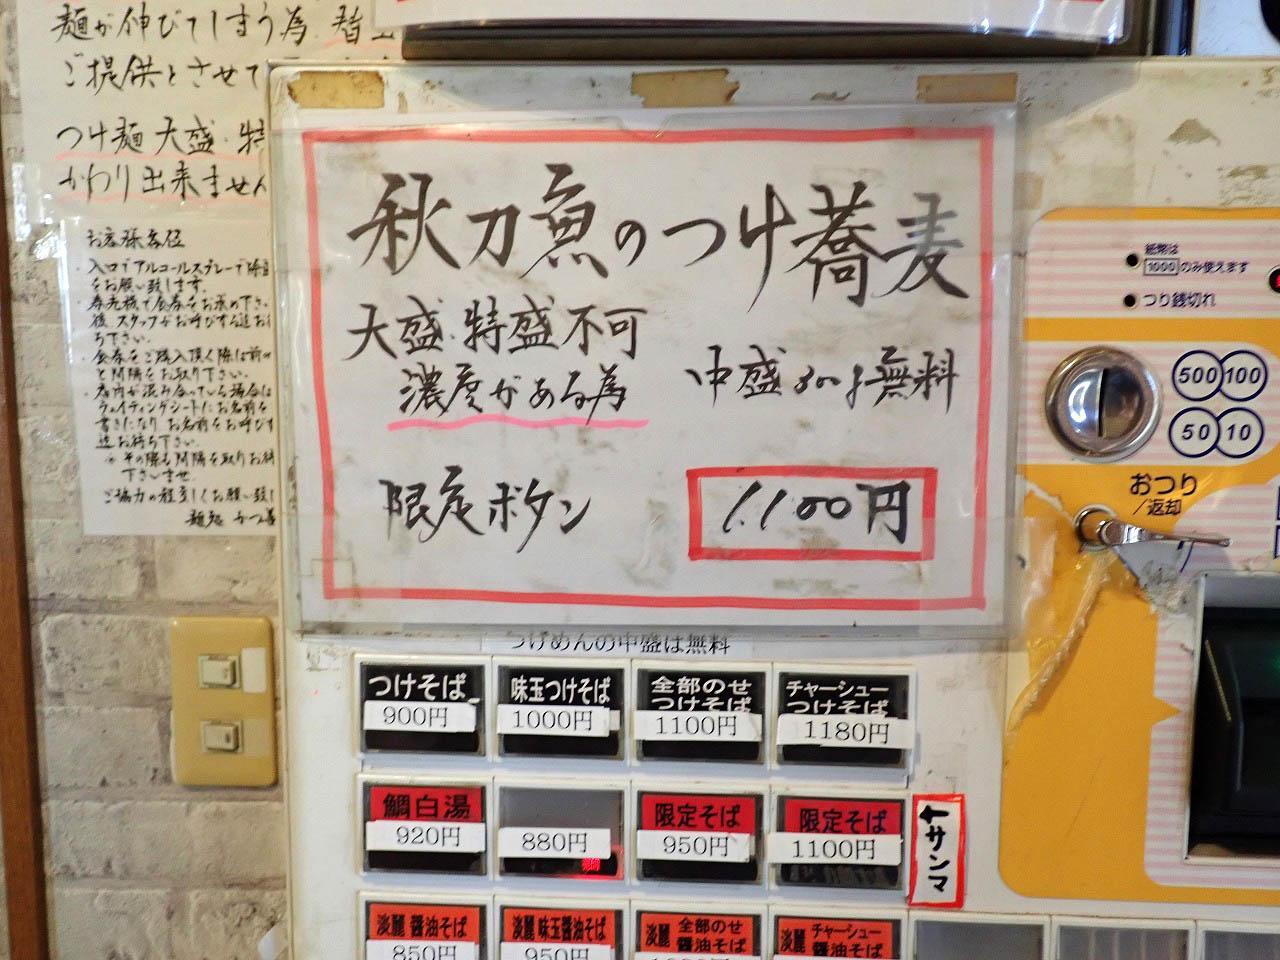 麺が伸びてしまう為、替玉
ご提供とさせて
つけ麺 大盛・特
かわり出来ません
お客様各位
・入口でアルコールスプレーで除菌
をお願い致します。
・券売機で食券をお求め下さい
後、スタッフがお呼びする迄お待
ち下さい。
・食券をご購入頂く際は前の
と間隔をお取り下さい。
・店内が混み合っている場合は
ウェイティングシートにお名前を
書きになり お名前をお呼びす
迄お待ち下さい。
※その際も間隔を取りお待
下さいませ。
ご協力の程宜しくお願い致し
麺処 かつ善
秋刀魚のつけ蕎麦
大盛・特盛不可
濃度がある為
中盛300g無料
限定ボタン
1,100円
つけめんの中盛は無料
つけそば
900円
味玉つけそば
1000円
全部のせ
つけそば
1100円
チャーシュー
つけそば
1180円
鯛白湯
920円
880円
限定そば
950円
限定そば
1100円
↑サンマ
淡麗 醤油そば
850円
淡麗 味玉醤油そば
950円
淡麗 全部のせ
醤油そば
淡麗 チャーシュー
醤油そば
紙幣は
1000のみ使えます
つり銭切れ
500 100
50 10
おつり
/返却